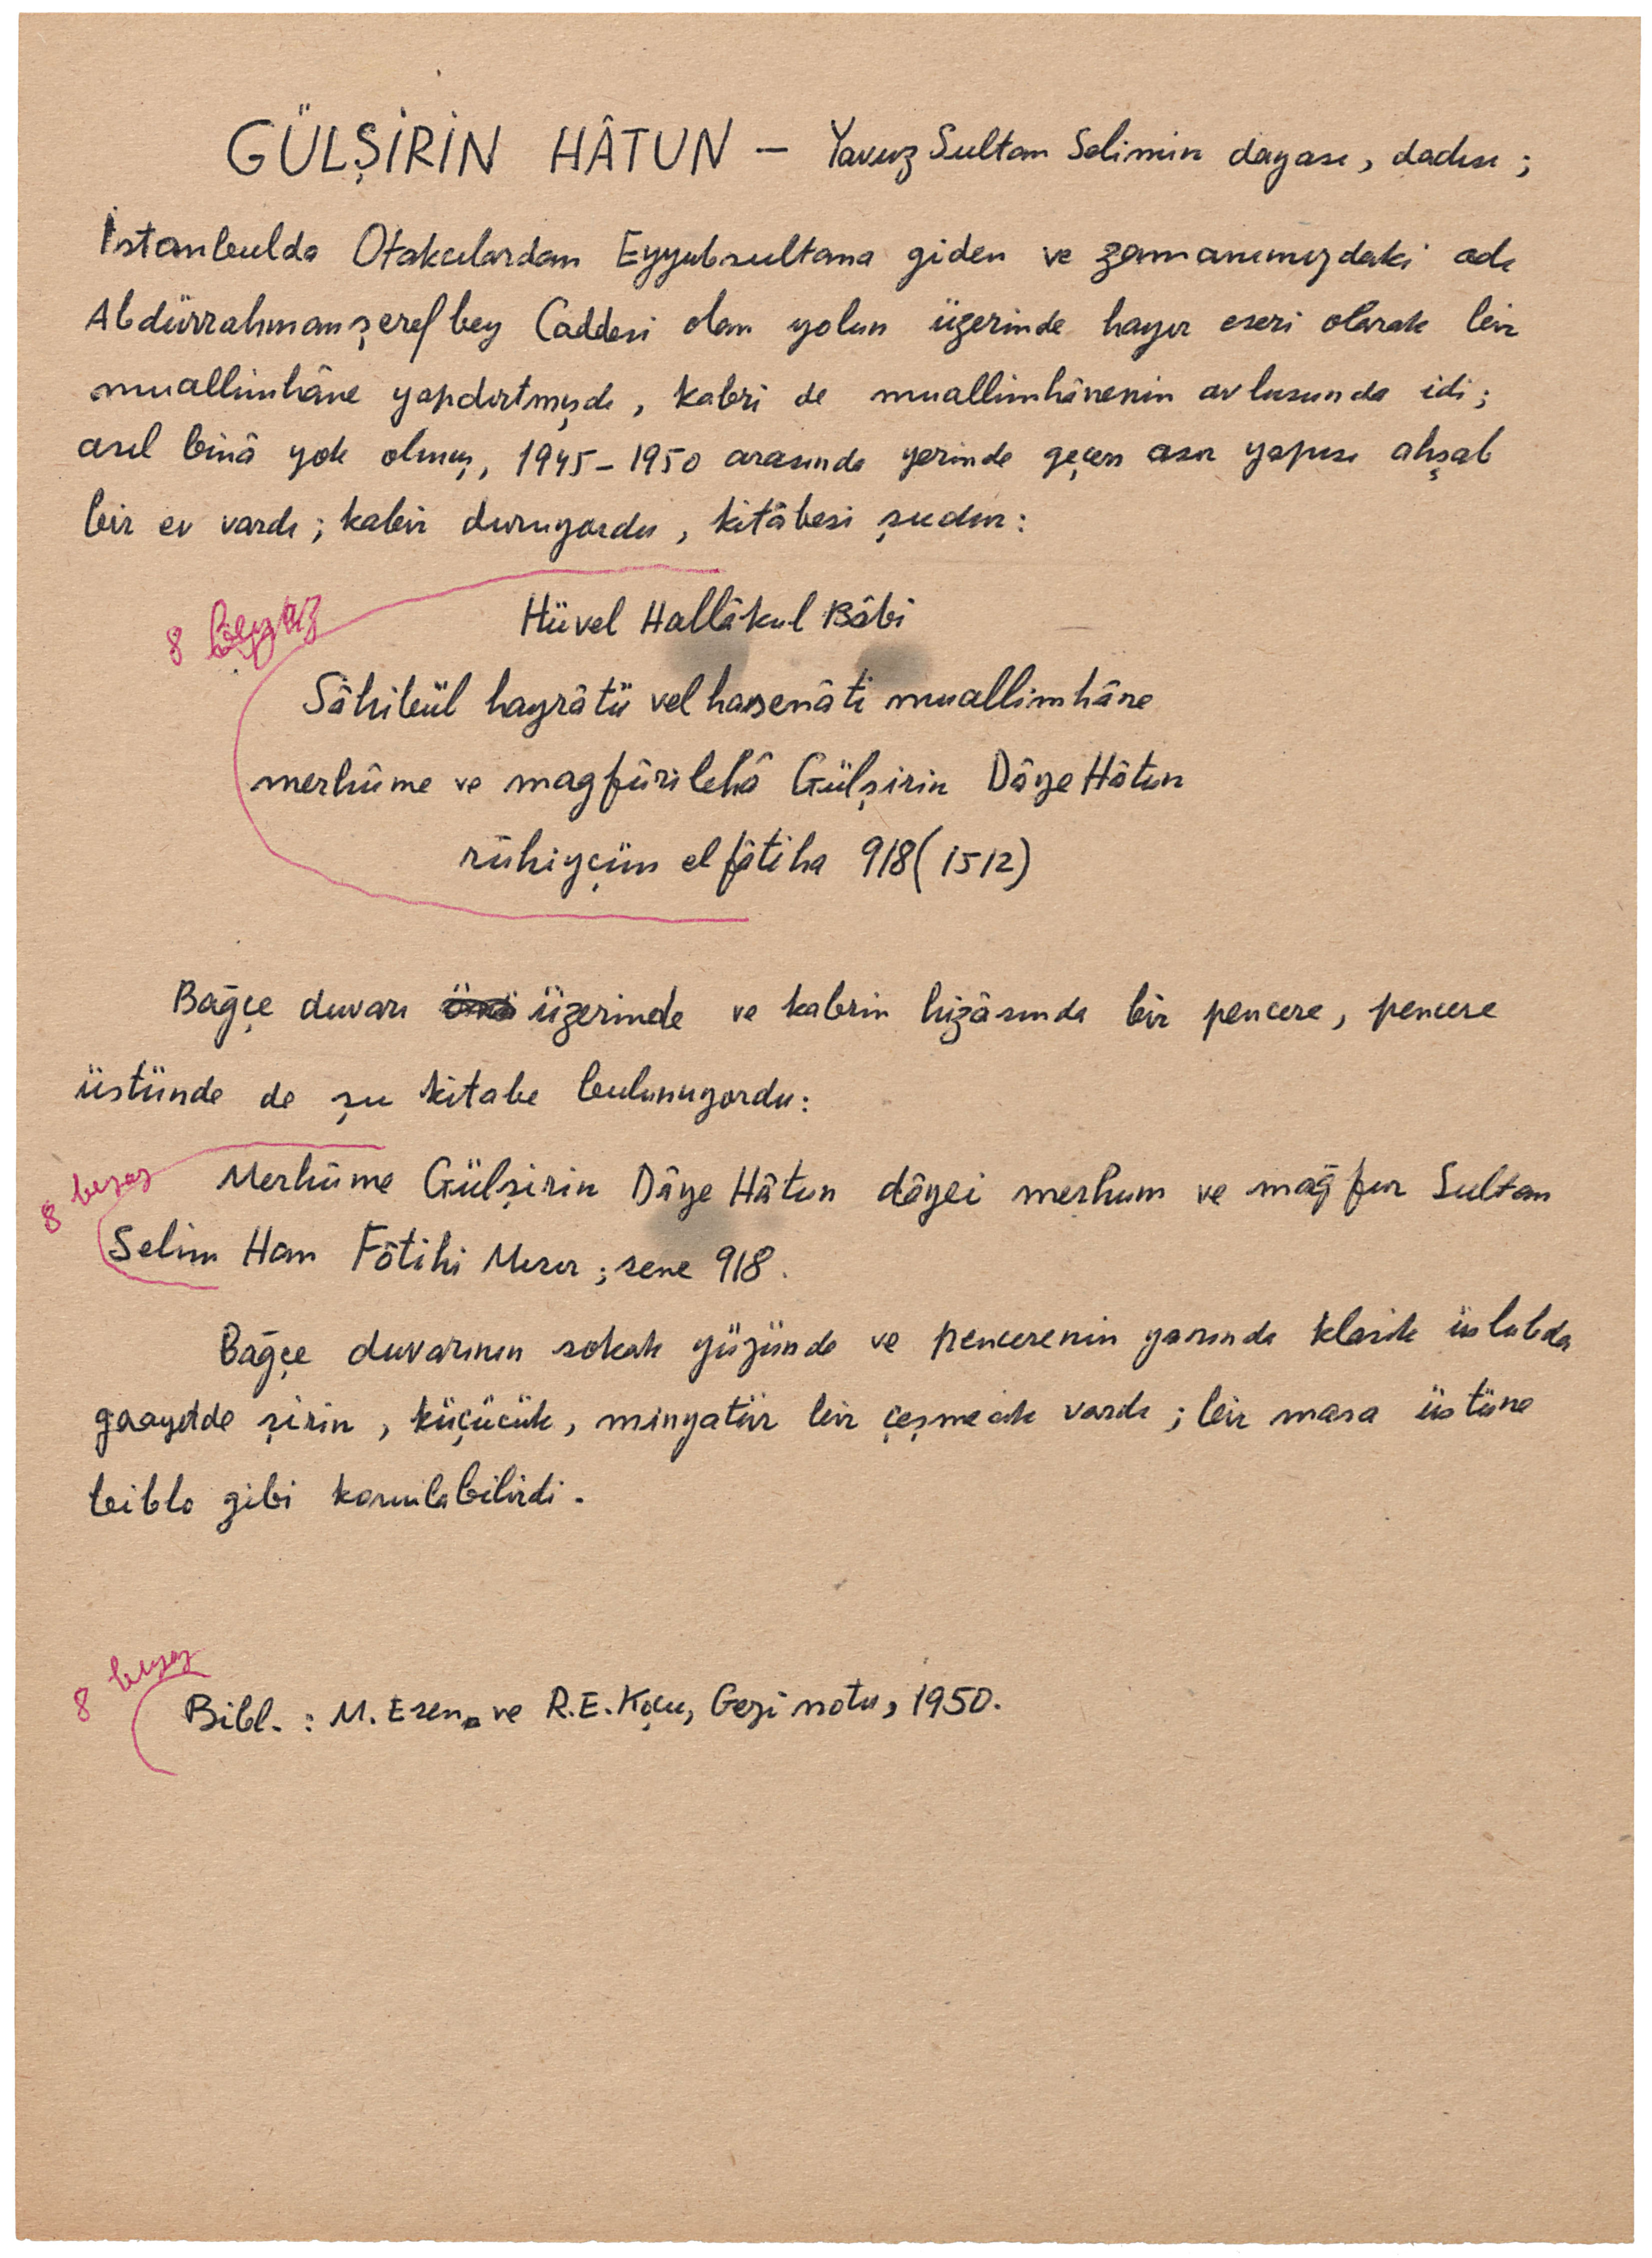 GÜLŞİRİN HÂTUN — Yavuz Sultan Selimin dayası, dadısı;
İstanbulda Otakcılardan Eyyubsultana giden ve zamanımızdaki adı
Abdürrahmanşerefbey Caddesi olan yolun üzerinde hayır eseri olarak bir
muallimhâne yapdırtmışdı, kabri de muallimhânenin avlusunda idi;
asıl binâ yok olmuş, 1945-1950 arasında yerinde geçen asır yapısı ahşab
bir ev vardı; kabir duruyordu, kitâbesi şudur:
8 beyaz
Hüvel Hallâkul Bâki
Sâhibül hayrâtü vel hasenâti muallimhâne
merhûme ve magfûrilehâ Gülşirin Dâye Hâtun
rûhiyçün el fâtiha 918 (1512)
Bağçe duvarı üzerinde ve kabrin hizâsında bir pencere, pencere
üstünde de şu kitabe bulunuyordu:
8 beyaz
Merhûme Gülşirin Dâye Hâtun dâyei merhum ve mağfur Sultan
Selim Han Fâtihi Mısır; sene 918.
Bağçe duvarının sokak yüzünde ve pencerenin yanında klasik üslubda
gaayetde şirin, küçücük, minyatür bir çeşmecik vardı; bir masa üstüne
biblo gibi konulabilirdi.
8 beyaz
Bibl. : M. Esen ve R.E. Koçu, Gezi notu, 1950.